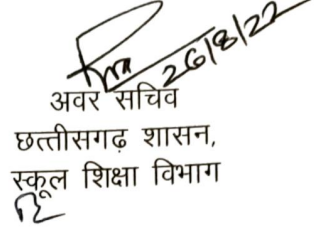 26/8/22
अवर सचिव
छत्तीसगढ़ शासन,
स्कूल शिक्षा विभाग